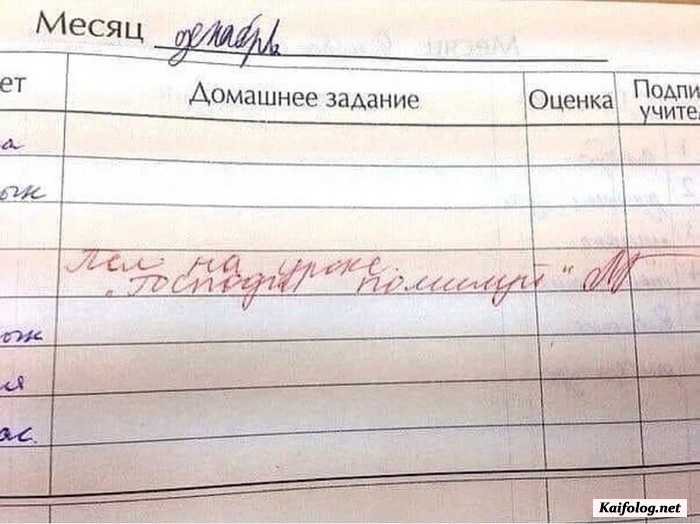 Месяц декабрь
ет Домашнее задание Оценка Подпи
учител
а
ык
Пел на уроке
„Господи помилуй"
ык
ия
ас.
Kaifolog.net